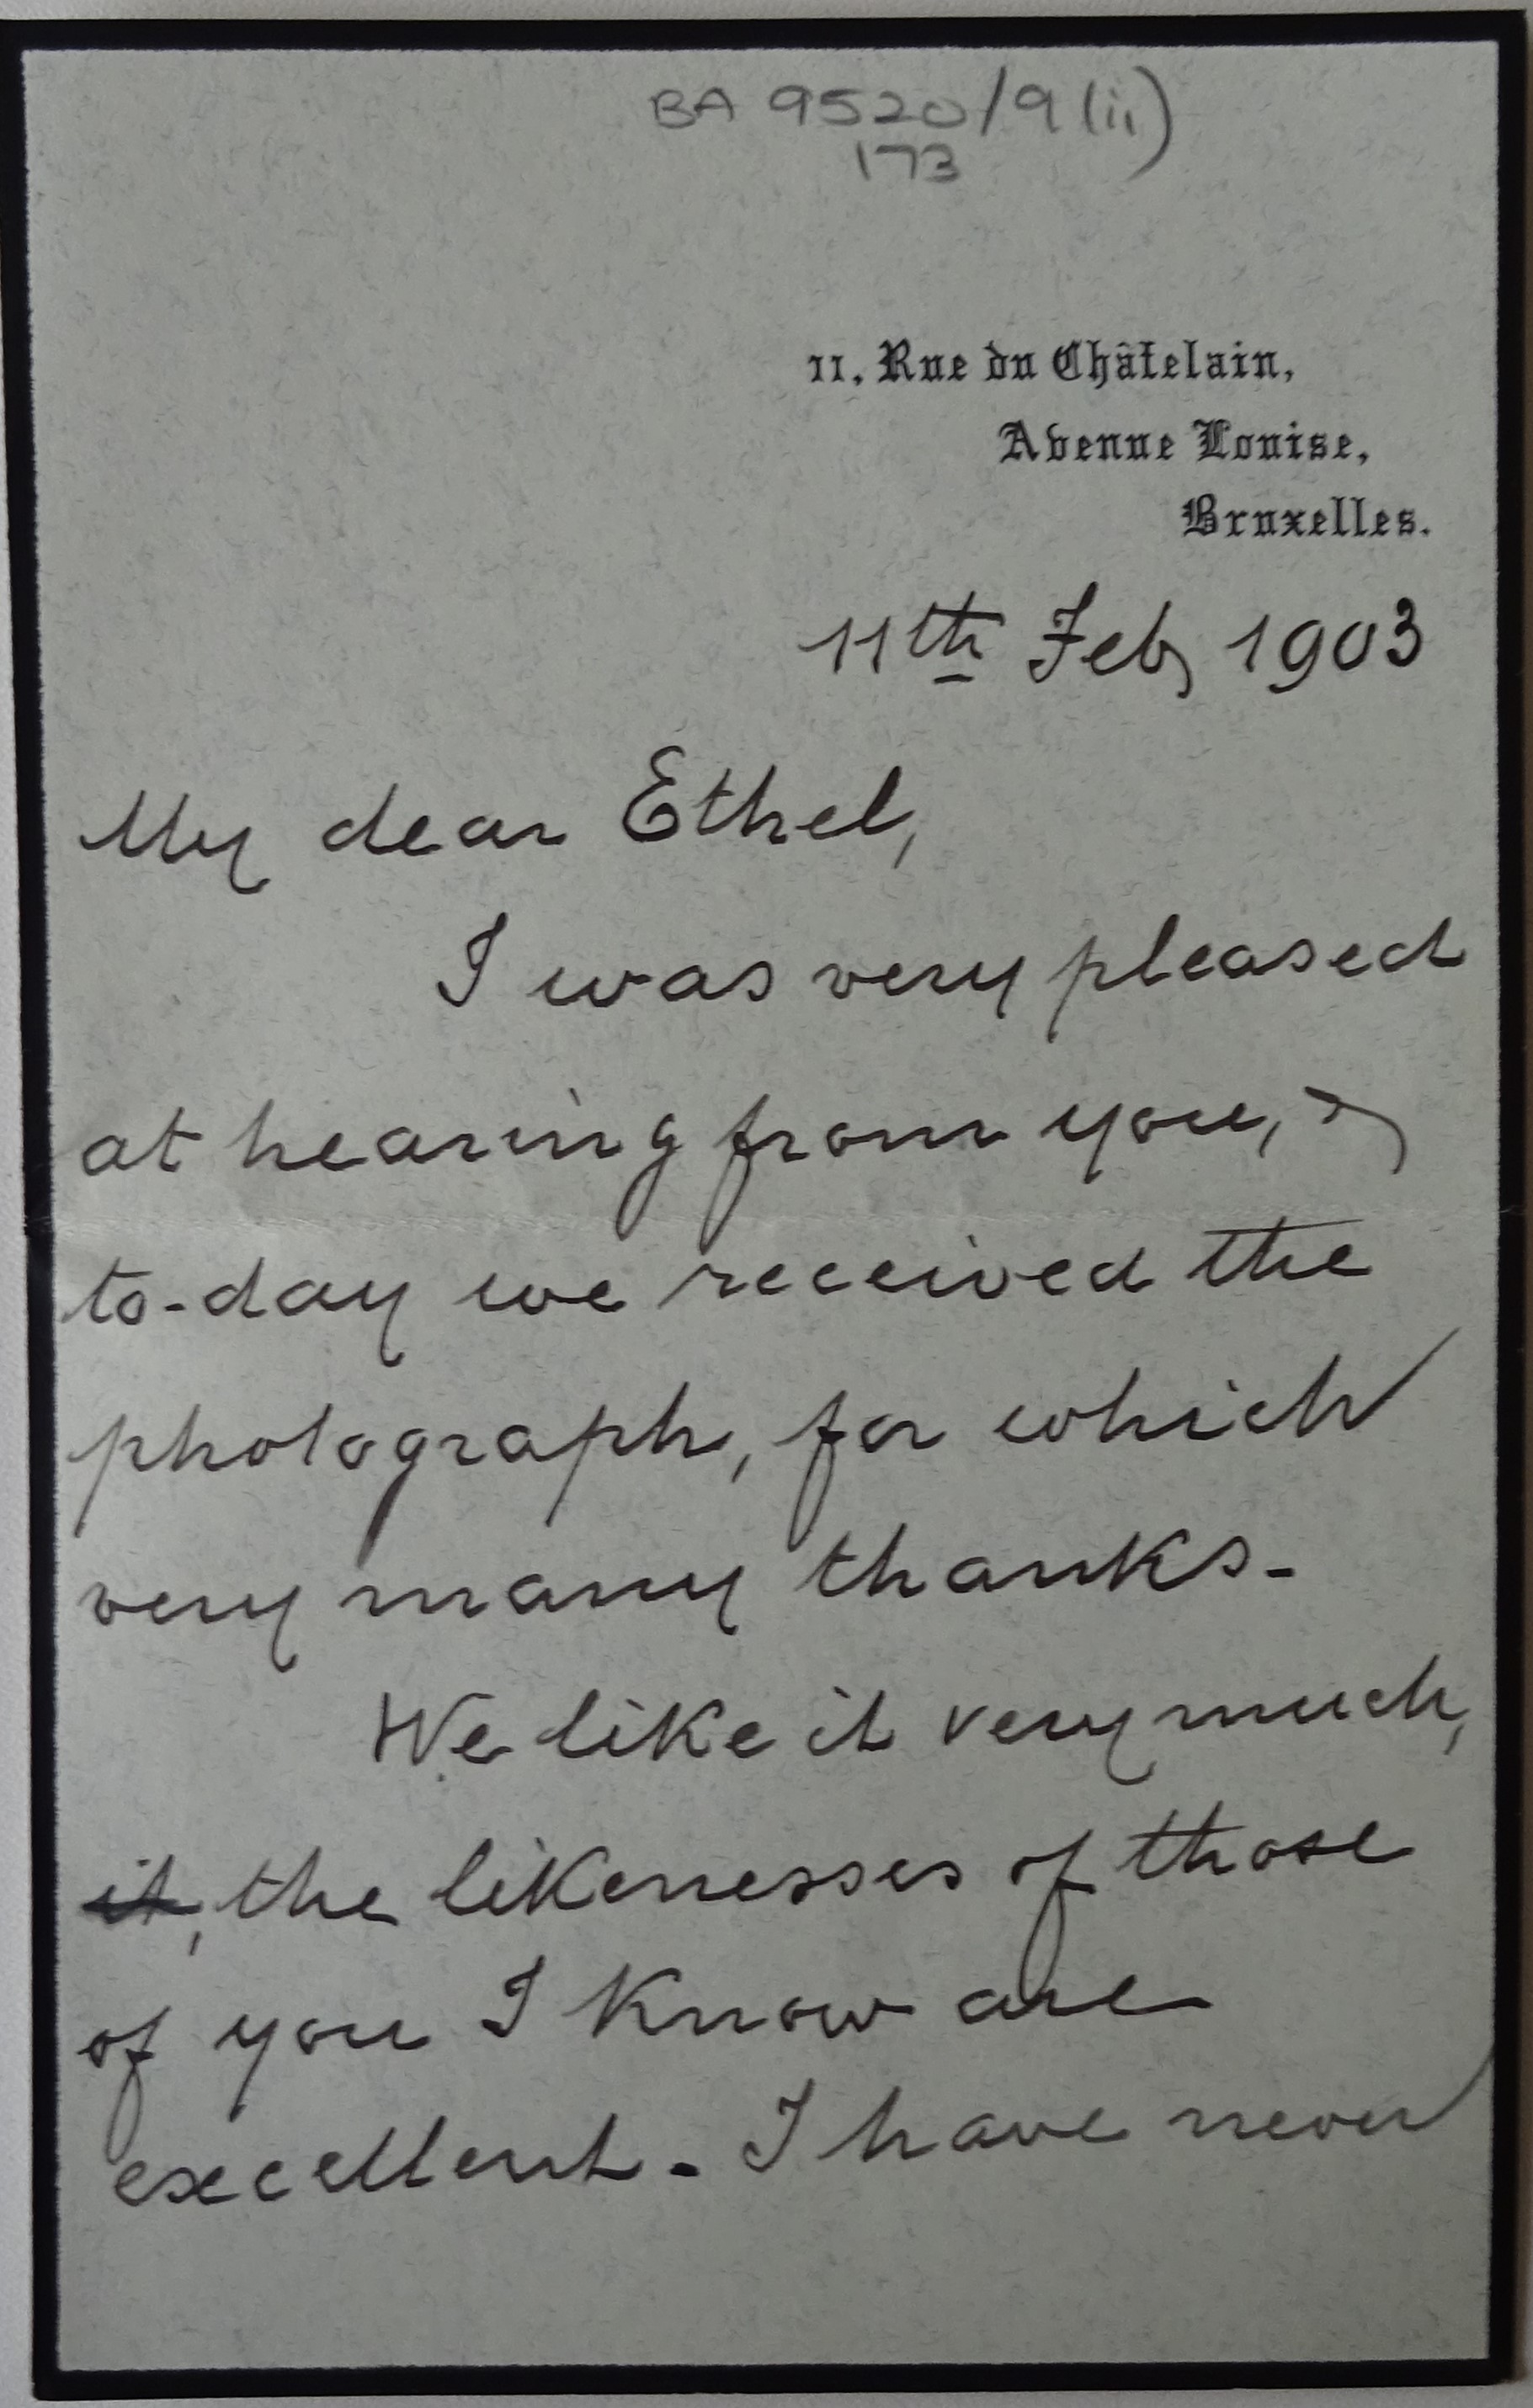 BA 9520/9(ii)
173
11, Rue du Châtelain,
Avenue Louise,
Bruxelles.
11th Feb, 1903
My dear Ethel,
I was very pleased
at hearing from you, &
to-day we received the
photograph, for which
very many thanks.
We like it very much,
it, the likenesses of those
of you I know are
excellent. I have never